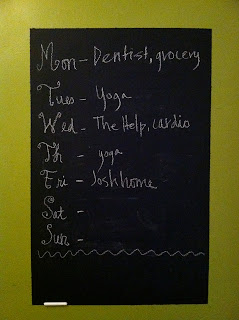 Mon - Dentist, grocery
Tues - Yoga
Wed - The Help, cardio
Th - yoga
Fri - Josh home
Sat -
Sun -